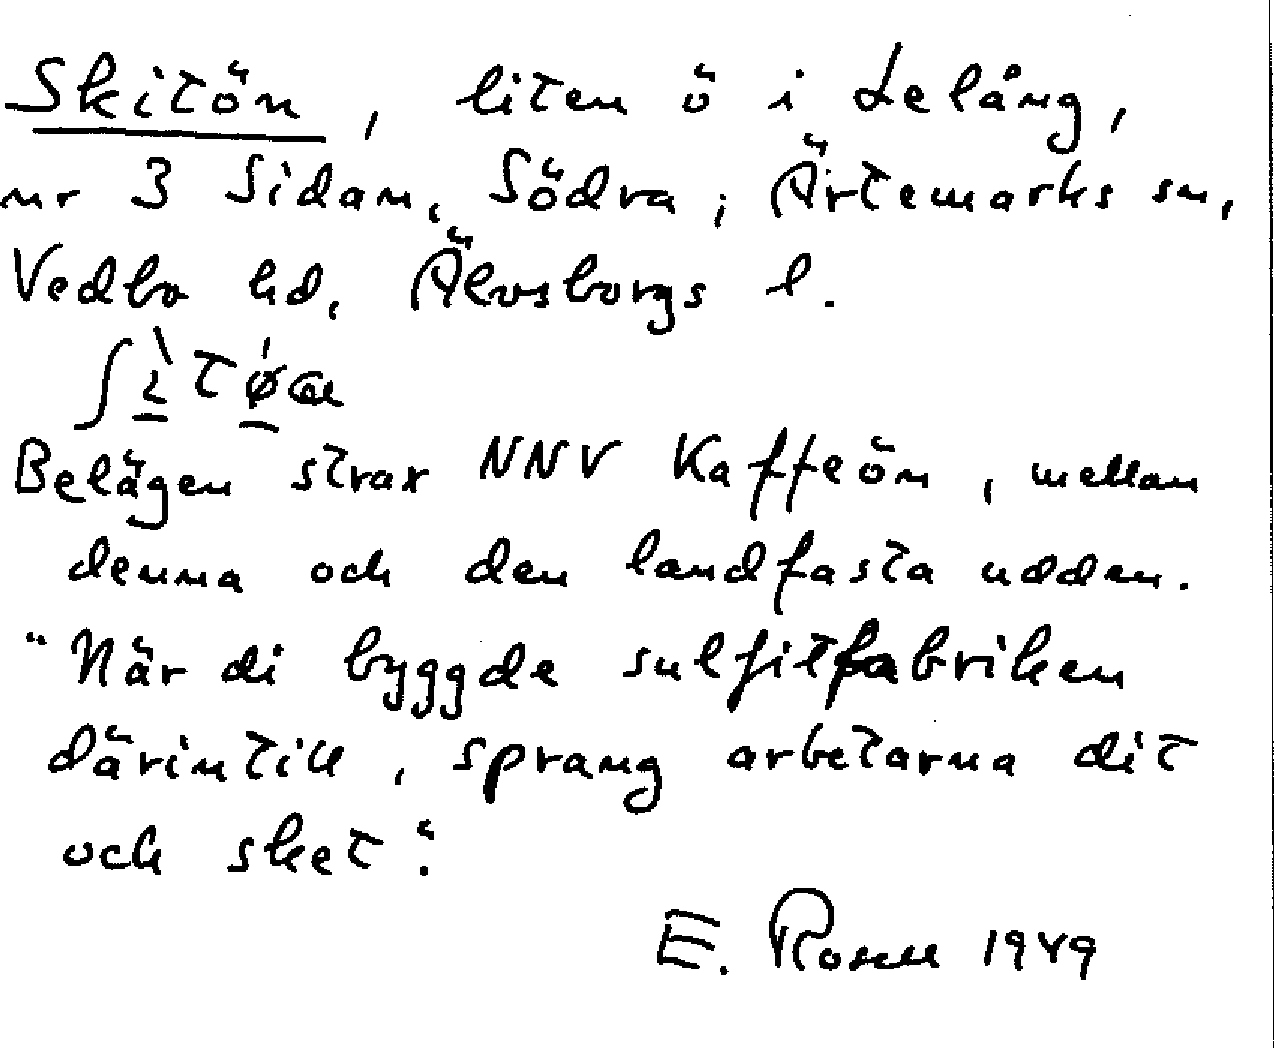 Skitön, liten ö i Lelång,
nr 3 Sidan, Södra, i Ärtemarks sn,
Vedbo hd, Älvsborgs l.
Belägen strax NNV Kaffeön, mellan
denna och den landfasta udden.
"När di byggde sulfitfabriken
därintill, sprang arbetarna dit
och sket".
E. Rosell 1949